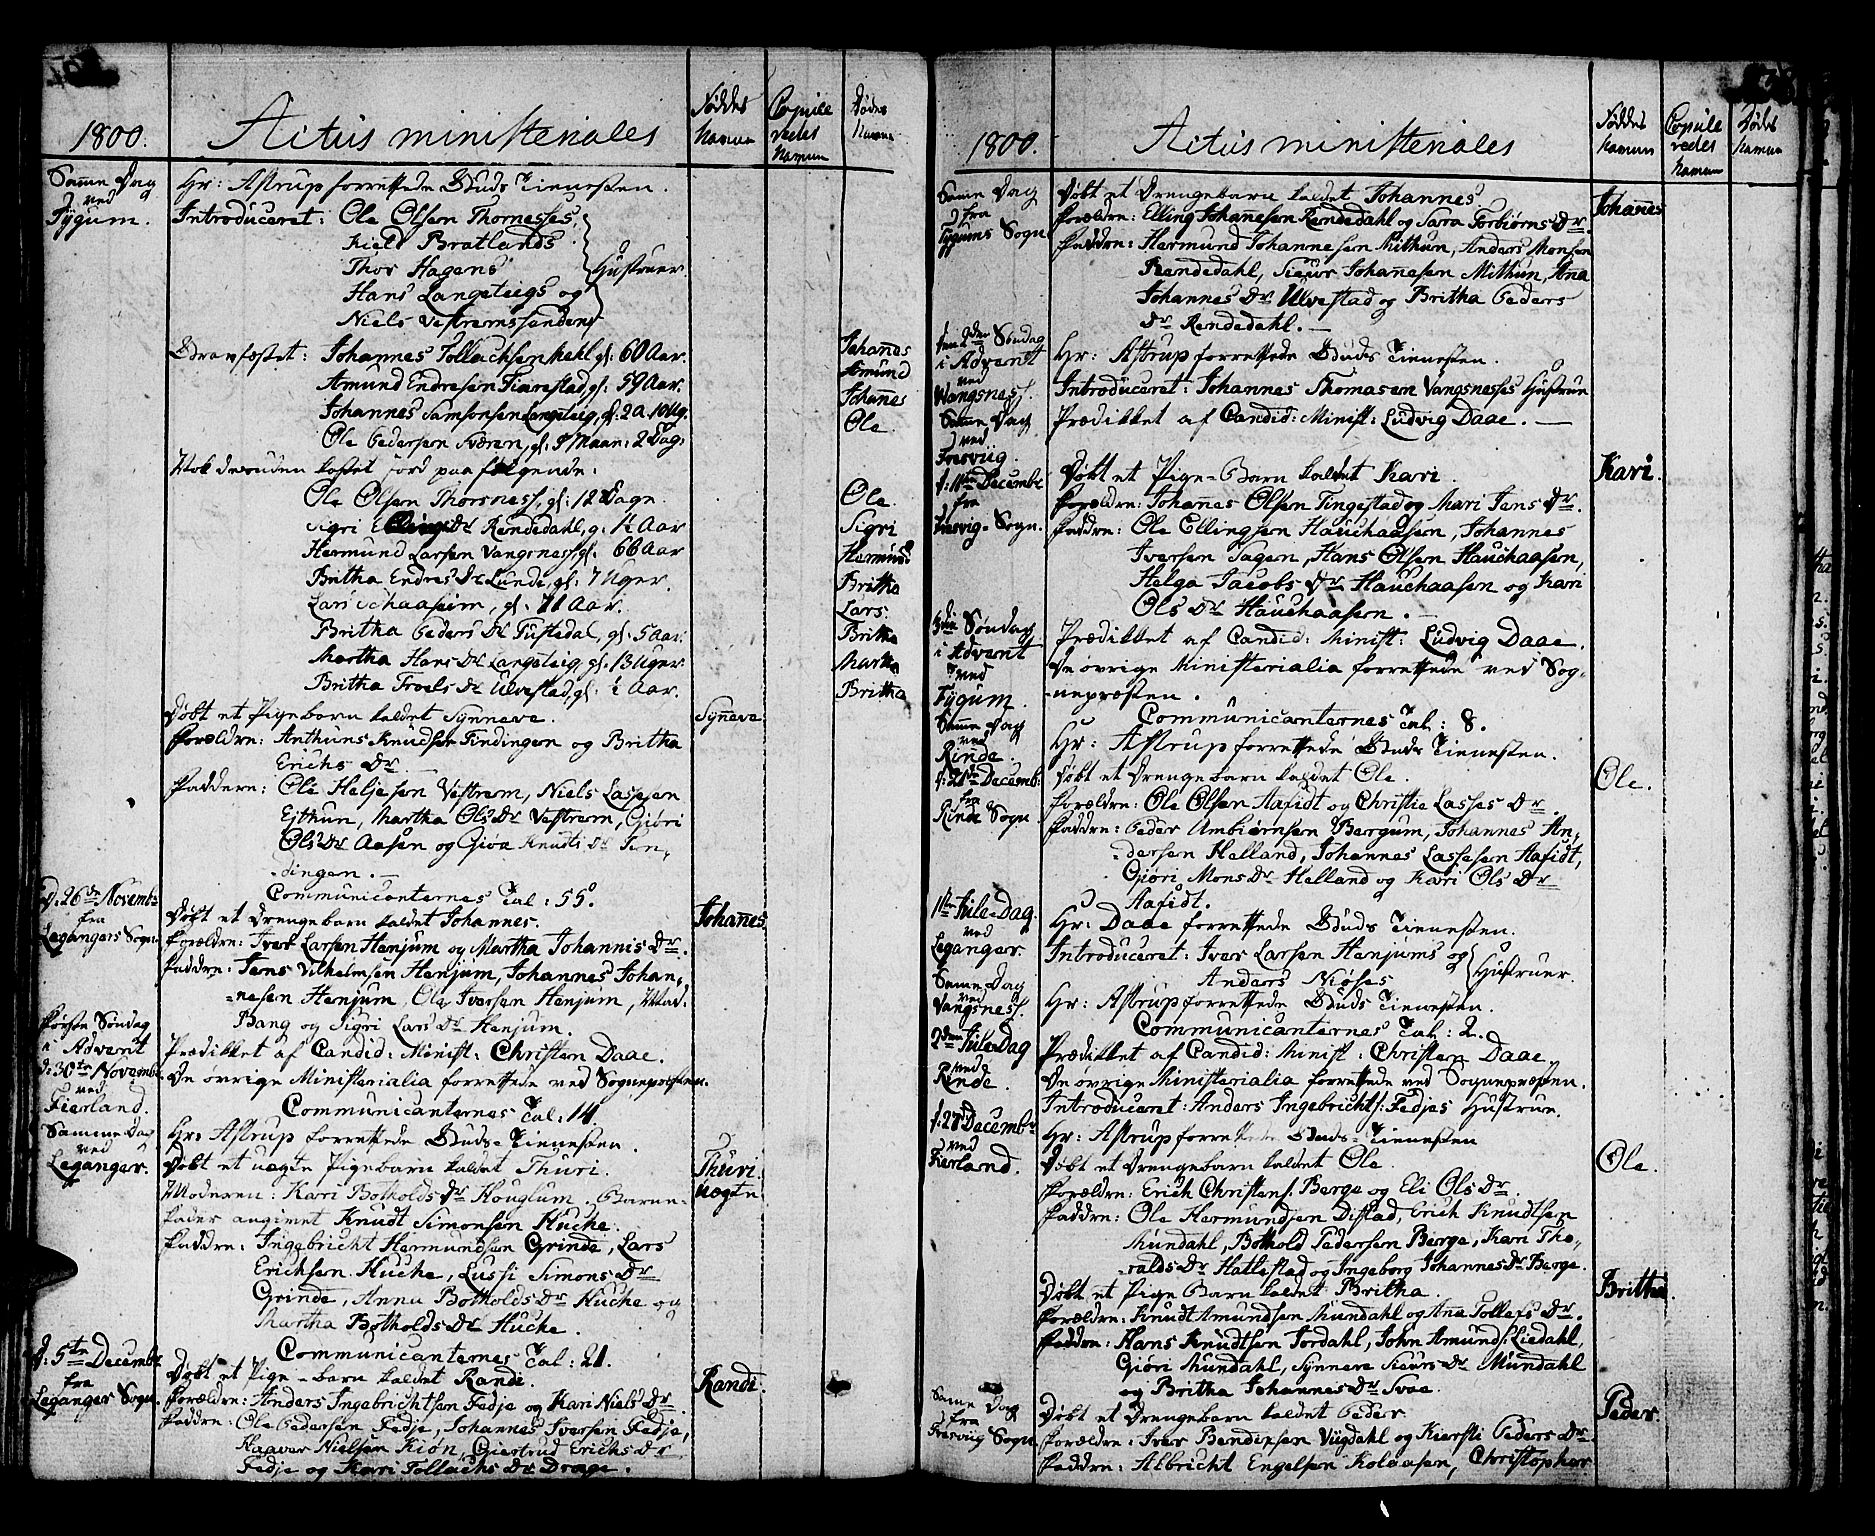 1800.
Actus ministeriales
Føddes Namen
Copule vedes Namen
Dødes Namen
Samme Dag ved Tygum.
Hr: Astrup forrettede Guds Tienesten.
Introduceret: Ole Olsen Thornesses,
Kield Bratlands
Thor Hagens
Hans Langeteigs og
Niels Vestremssendens
Hustruer.
Gravfæstet: Johannes Tollachsen Mehl, gl: 60 Aar.
Johannes
Amund Endresen Fiærestad, gl: 59 Aar.
Amund
Johannes Samsonsen Langeteig, gl: 2 A. 10 Ug.
Johannes
Ole Pedersen Sværen, gl: 9 Maan: 2 Dag:
Ole
Nok desuden kastet Jord paa følgende:
Ole Olsen Thorsness, gl: 12 Dage.
Ole
Sigri Ellings Dr Rendedahl, g: ½ Aar
Sigri
Hermund Larsen Vangsness, gl: 66 Aar
Hermund
Britha Endres Dr Lunde, gl: 7 Uger.
Britha
Lars Schaasheim, gl: 71 Aar.
Lars.
Britha Peders Dr Tustedal, gl: 5 Aar:
Britha
Martha Hans Dr Langeteig, gl: 13 Uger.
Martha
Britha Troels Dr Ulvestad, gl: ½ Aar.
Britha
Døbt et Pigebarn kaldet Synneve.
Synneve
Forældre: Anthuns Knudsen Findingen og Britha
Erichs Dr
Faddere: Ole Heljesen Vestrem, Niels Lassesen
Eithun, Martha Ols Dr Vestrem, Giöri
Ols Dr Aasen og Giöa Knudts Dr Fin-
dingen.
Communicanternes Tal: 55.
d: 26de Novembr fra Legangers Sogn
Døbt et Drengebarn kaldet Johannes.
Johannes
Forældre: Iver Larsen Henjum og Martha Johannis Dr.
Faddre: Jens Vilhelmsen Henjum, Johannes Johan-
nesen Henjum, Ole Iversen Henjum, Mad.
Bang og Sigri Lars Dr Henjum.
Første Søndag i Advent d: 30te Novembr ved Fierland.
Prædikket af Candid: Minist: Christen Daae.
De øvrige Ministerialia forrettede ved Sognepræsten.
Communicanternes Tal: 14
Samme Dag ved Leganger.
Hr: Astrup forrettede Guds-Tienesten.
Døbt et uægte Pigebarn kaldet Thuri.
Thuri uægte
Moderen: Kari Botholds Dr Houglum. Barne-
fader angivet Knudt Simonsen Huche.
Faddre: Ingebricht Hermundsen Grinde, Lars
Erichsen Huche, Lussi Simons Dr
Grinde, Anna Botholds Dr Huche og
Martha Botholds Dr Huche.
Communicanternes Tal: 21.
d: 5te Decembr fra Leganger Sogn.
Døbt et Pige-barn kaldet Randi.
Randi.
Forældre: Anders Ingebrichtsen Fedje og Kari Niels Dr
Faddre: Ole Pedersen Fedje, Johannes Iversen Fedje,
Haaver Nielsen Kion, Giertrud Erichs Dr
Fedje og Kari Tollachs Dr Drage.
1800.
Actus ministeriales
Føddes Namen
Copule vedes Namen
Dødes Namen
Samme Dag fra Tygums Sogn
Døbt et Drengebarn kaldet Johannes.
Johannes
Forældre: Elling Johanesen Rendedahl og Sara Torbiörns Dr.
Faddre: Hermund Johannesen Mithun, Anders Monsen
Rendedahl, Siur Johanesen Mithun, Ana
Johannes Dr Ulvestad og Britha Peders
Dr Rendedahl.
den 2den Søndag i Advent ved Vangsness.
Hr: Astrup forrettede Guds Tienesten.
Introduceret: Johannes Thomasen Vangsnesses Hustrue
Samme Dag ved Fresviig.
Prædikket af Candid: Minist: Ludvig Daae.
d: 11te Decembr fra Fresvig-Sogn.
Døbt et Pige-Barn kaldet Kari.
Kari.
Forældre: Johannes Olsen Tingestad og Mari Jens Dr.
Faddre: Ole Ellingsen Hauchaasen, Johannes
Iversen Tagen, Hans Olsen Hauchaasen,
Helga Jacobs Dr Hauchaasen og Kari
Ols Dr Hauchaasen.
3die Søndag i Advent ved Tygum.
Prædikket af Candid: Minist: Ludvig Daae.
De øvrige Ministerialia forrettede ved Sog-
nepræsten.
Communicanternes Tal: 8.
Samme Dag ved Rinde.
Hr: Astrup forrettede Guds Tienesten.
d: 21de Decemb: fra Rinde Sogn
Døbt et Drengebarn kaldet Ole.
Ole.
Forældre: Ole Olsen Aafidt og Christie Lasses Dr
Faddre: Peder Ambiörnsen Bergum, Johannes An-
dersen Helland, Johannes Lassesen Aafidt,
Giöri Mons Dr Helland og Kari Ols Dr
Aafidt.
1ste Jule-Dag. ved Leganger.
Hr: Daae forrettede Guds Tienesten.
Introduceret: Iver Larsen Henjums og
Anders Niøses
Hustruer
Samme Dag ved Vangsness.
Hr: Astrup forrettede Guds Tienesten.
Communicanternes Tal: 2.
2den Jule-Dag ved Rinde.
Prædikket af Candid: Minist: Christen Daae.
De øvrige Ministerialia forrettede ved Sognepræsten.
Introduceret: Anders Ingebrichts: Fedjes Hustrue.
d: 28 Decembr ved Fierland.
Hr: Astrup forrettede Guds-Tienesten
Døbt et Drengebarn kaldet Ole.
Ole.
Forældre: Erich Christens: Berge og Eli Ols Dr.
Faddre: Ole Hermundsen Distad, Erich Knudtsen
Mundahl, Bothold Pedersen Berge, Kari Tho-
ralds Dr Hattestad og Ingeborg Johannes Dr Berge.
Døbt et Pige Barn kaldet Britha.
Britha.
Forældre: Knudt Amundsen Mundahl og Ana Tollefs Dr.
Faddre: Hans Knudtsen Jordahl, John Amunds: Liedahl,
Giöri Mundahl, Synneve Siurs Dr Mundahl
og Britha Johannes Dr Svae.
Samme Dag fra Fresviig Sogn
Døbt et Drengebarn kaldet Peder
Peder.
Forældre: Iver Bendixsen Viigdahl og Kiersti Peders Dr
Faddre: Albricht Engelsen Kolaasen, Christopher